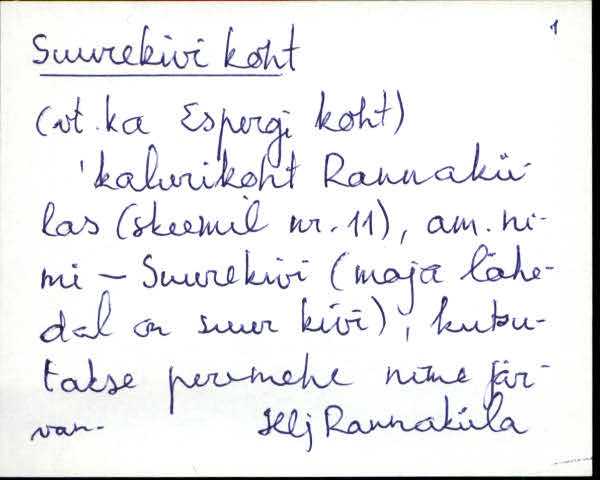 1
Suurekivi koht
(vt. ka Espergi koht)
'kalurikoht Rannakü-
las (skeemil nr. 11), am. ni-
mi – Suurekivi (maja lähe-
dal on suur kivi), kutsu-
takse peremehe nime jär-
van. Hlj Rannaküla